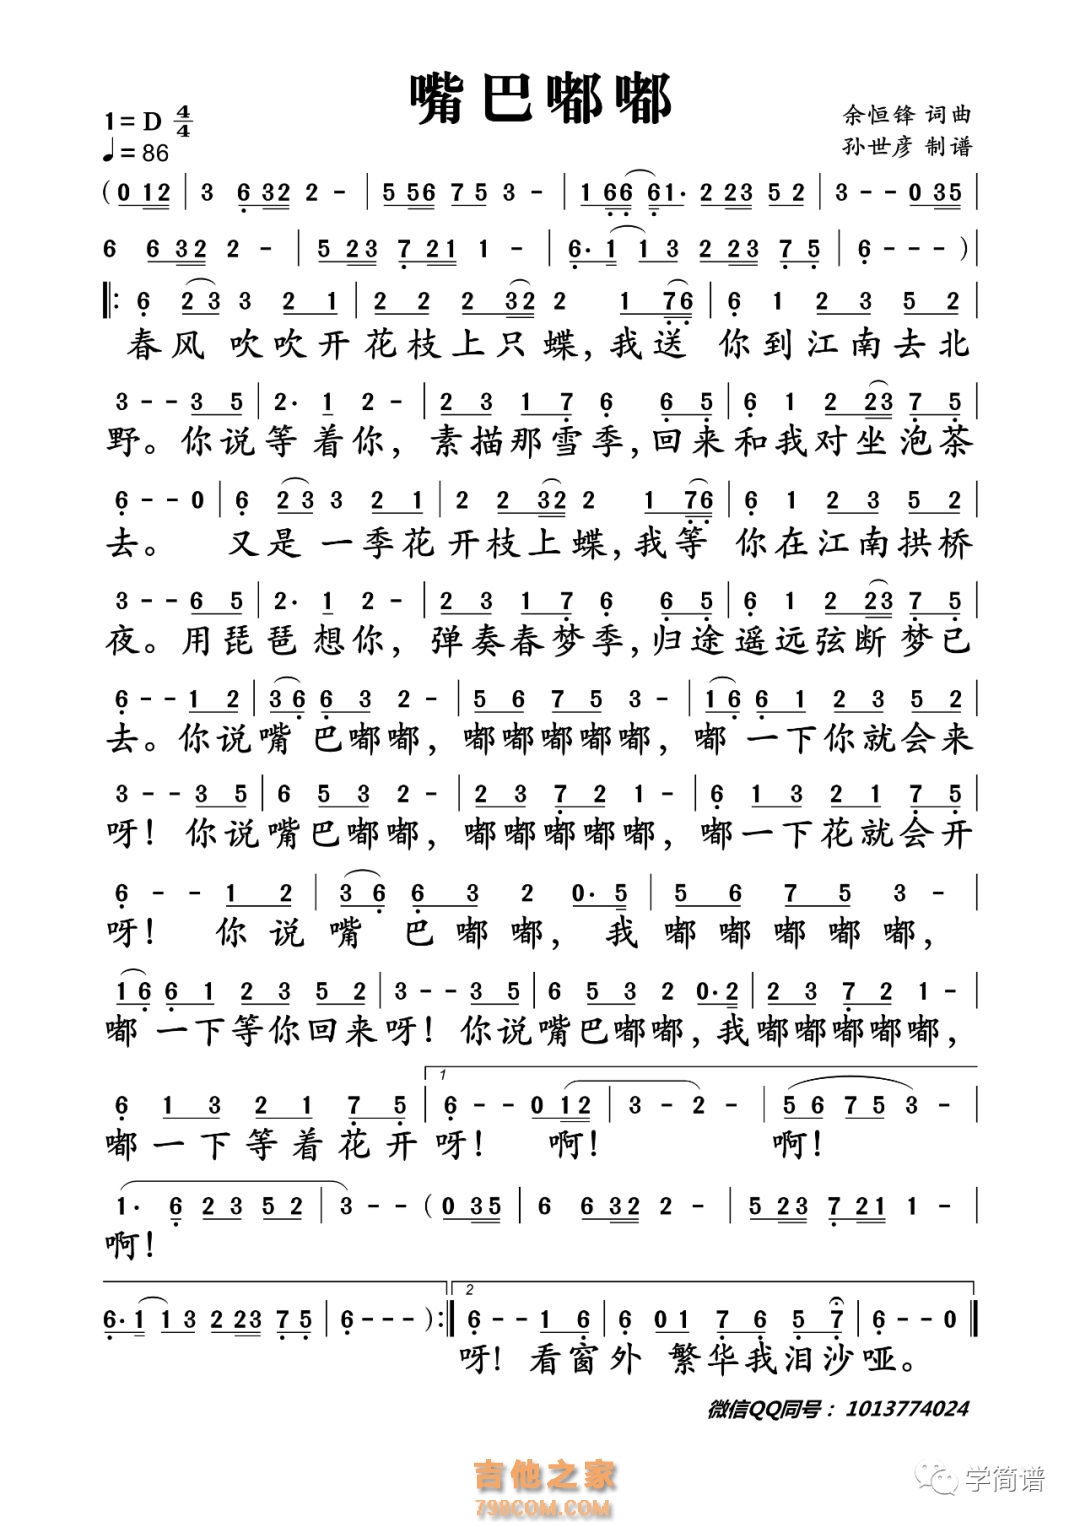 嘴巴嘟嘟
1=D 4/4
余恒锋 词曲
♩=86
孙世彦 制谱
(0 12 | 3 6 32 2 - | 5 56 7 5 3 - | 1 66 61· 2 23 5 2 | 3 - - 0 35 |
6 6 32 2 - | 5 23 7 21 1 - | 6· 1 1 3 2 23 7 5 | 6 - - - ) |
‖: 6 2 3 3 2 1 | 2 2 2 32 2 1 76 | 6 1 2 3 5 2
春风 吹吹开花枝上只蝶,我送 你到江南去北
3 - - 3 5 | 2· 1 2 - | 2 3 1 7 6 6 5 | 6 1 2 23 7 5
野。你说等着你, 素描那雪季,回来和我对坐泡茶
6 - - 0 | 6 2 3 3 2 1 | 2 2 32 2 1 76 | 6 1 2 3 5 2
去。 又是 一季花开枝上蝶,我等 你在江南拱桥
3 - - 6 5 | 2· 1 2 - | 2 3 1 7 6 6 5 | 6 1 2 23 7 5
夜。用琵琶想你, 弹奏春梦季,归途遥远弦断梦已
6 - - 1 2 | 3 6 6 3 2 - | 5 6 7 5 3 - | 1 6 6 1 2 3 5 2 |
去。你说嘴 巴嘟嘟, 嘟嘟嘟嘟嘟, 嘟 一下你就会来
3 - - 3 5 | 6 5 3 2 - | 2 3 7 2 1 - | 6 1 3 2 1 7 5 |
呀! 你说嘴巴嘟嘟, 嘟嘟嘟嘟嘟, 嘟一下花就会开
6 - - 1 2 | 3 6 6 3 2 0· 5 | 5 6 7 5 3 - |
呀! 你说嘴 巴嘟嘟, 我嘟嘟嘟嘟嘟,
1 6 6 1 2 3 5 2 | 3 - - 3 5 | 6 5 3 2 0· 2 | 2 3 7 2 1 - |
嘟 一下等你回来呀! 你说嘴巴嘟嘟,我嘟嘟嘟嘟嘟,
1
6 1 3 2 1 7 5 | 6 - - 0 12 | 3 - 2 - | 5 6 7 5 3 - |
嘟一下等着花开呀! 啊! 啊!
1· 6 2 3 5 2 | 3 - - (0 35 | 6 6 32 2 - | 5 23 7 21 1 - |
啊!
2
6· 1 1 3 2 23 7 5 | 6 - - - ) :‖ 6 - - 1 6 | 6 0 1 7 6 5 7 | 6 - - 0 ‖
呀! 看窗外 繁华我泪沙哑。
微信QQ同号：1013774024
吉他之家
798COM.COM
学简谱